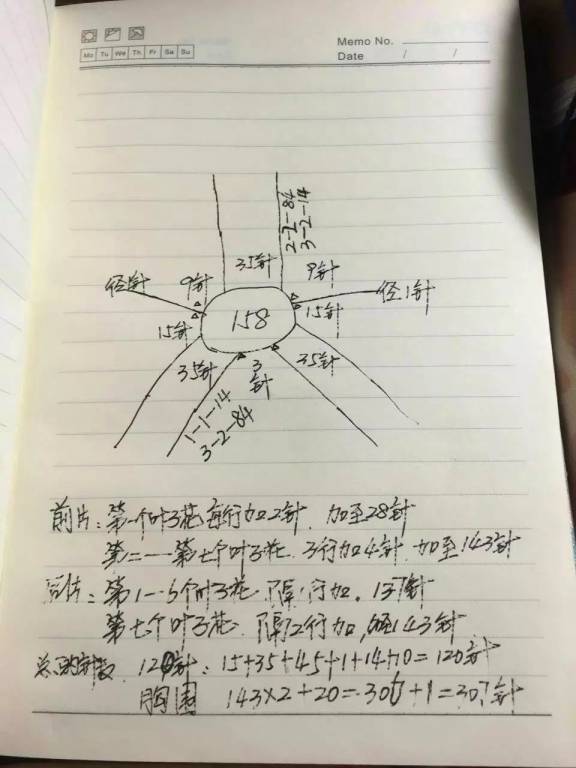 Memo No.
Mo Tu We Th Fr Sa Su
Date / /
2-2-84
3-2-14
35针
9针
9针
径1针
径1针
158
15针
15针
35针
3针
35针
1-1-14
3-2-84
前片：第一个叶子花每行加2针．加至28针
第二一第七个叶子花．3行加4针 加至143针
后片：第1-6个叶子花 隔1行加．137针
第七个叶子花 隔2行加,143针
针数 120针：15+35+45+1+14+10=120针
胸围 143×2+20=306+1=307针